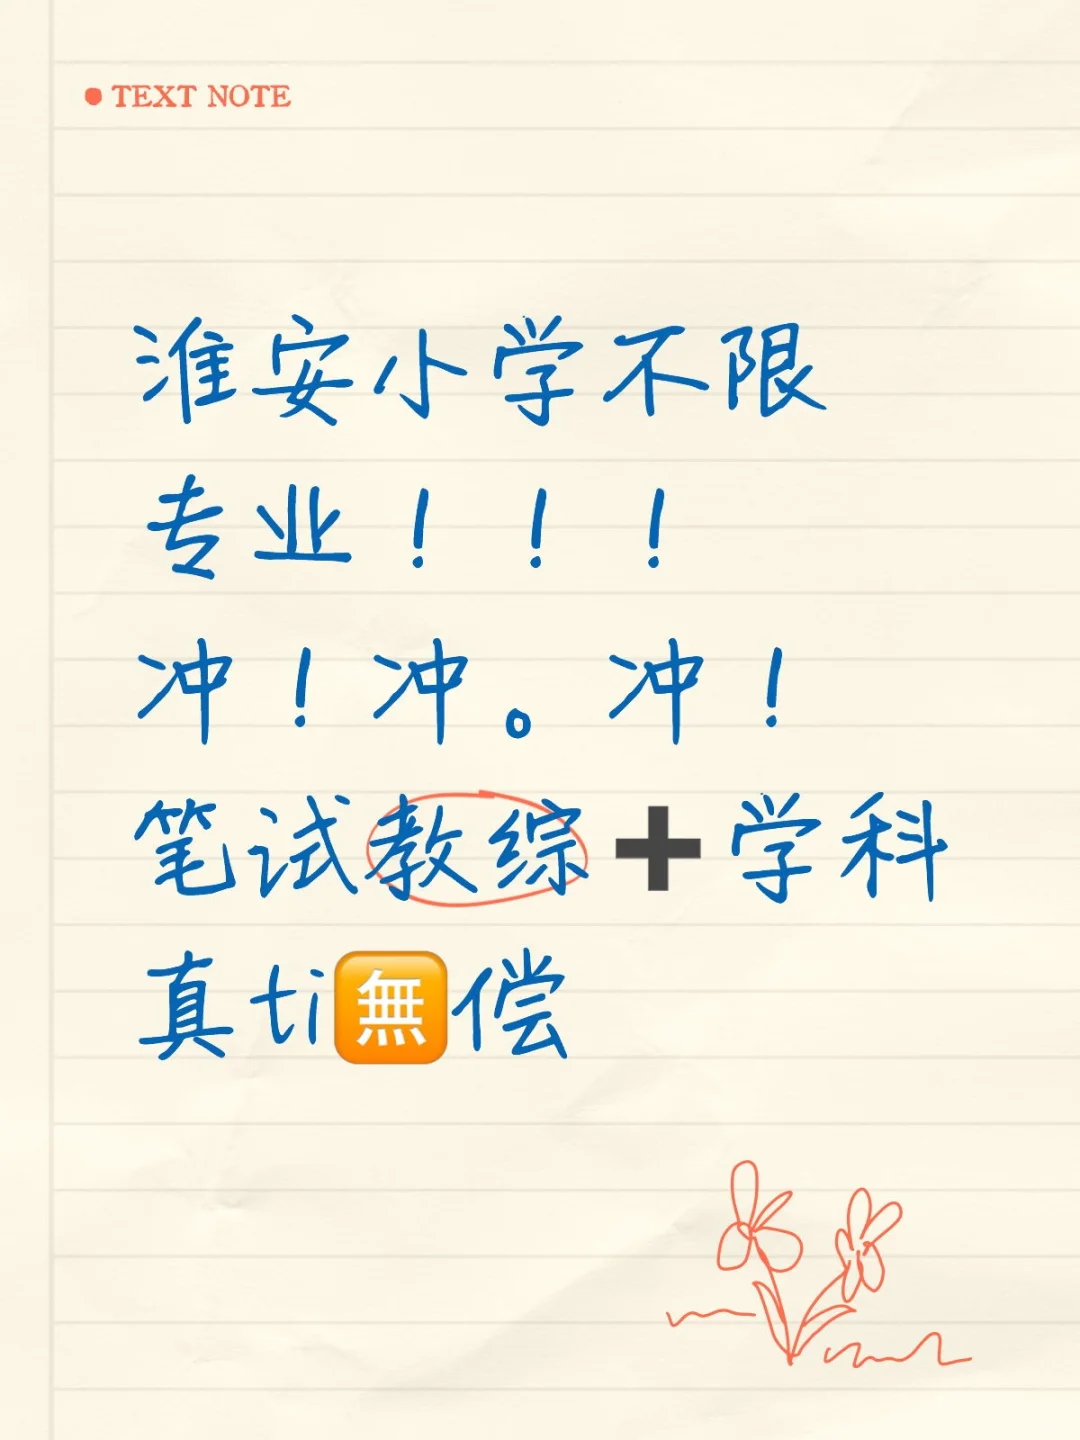 TEXT NOTE
淮安小学不限
专业！！！
冲！冲。冲！
笔试教综➕学科
真ti🈚偿